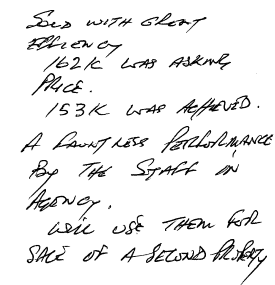 SOLD WITH GREAT
EFFICIENCY
162K WAS ASKING
PRICE.
153K WAS ACHIEVED.
A FAUNTLESS PERFORMANCE
BY THE STAFF IN
AGENCY.
WILL USE THEM FOR
SALE OF A SECOND PROPERTY